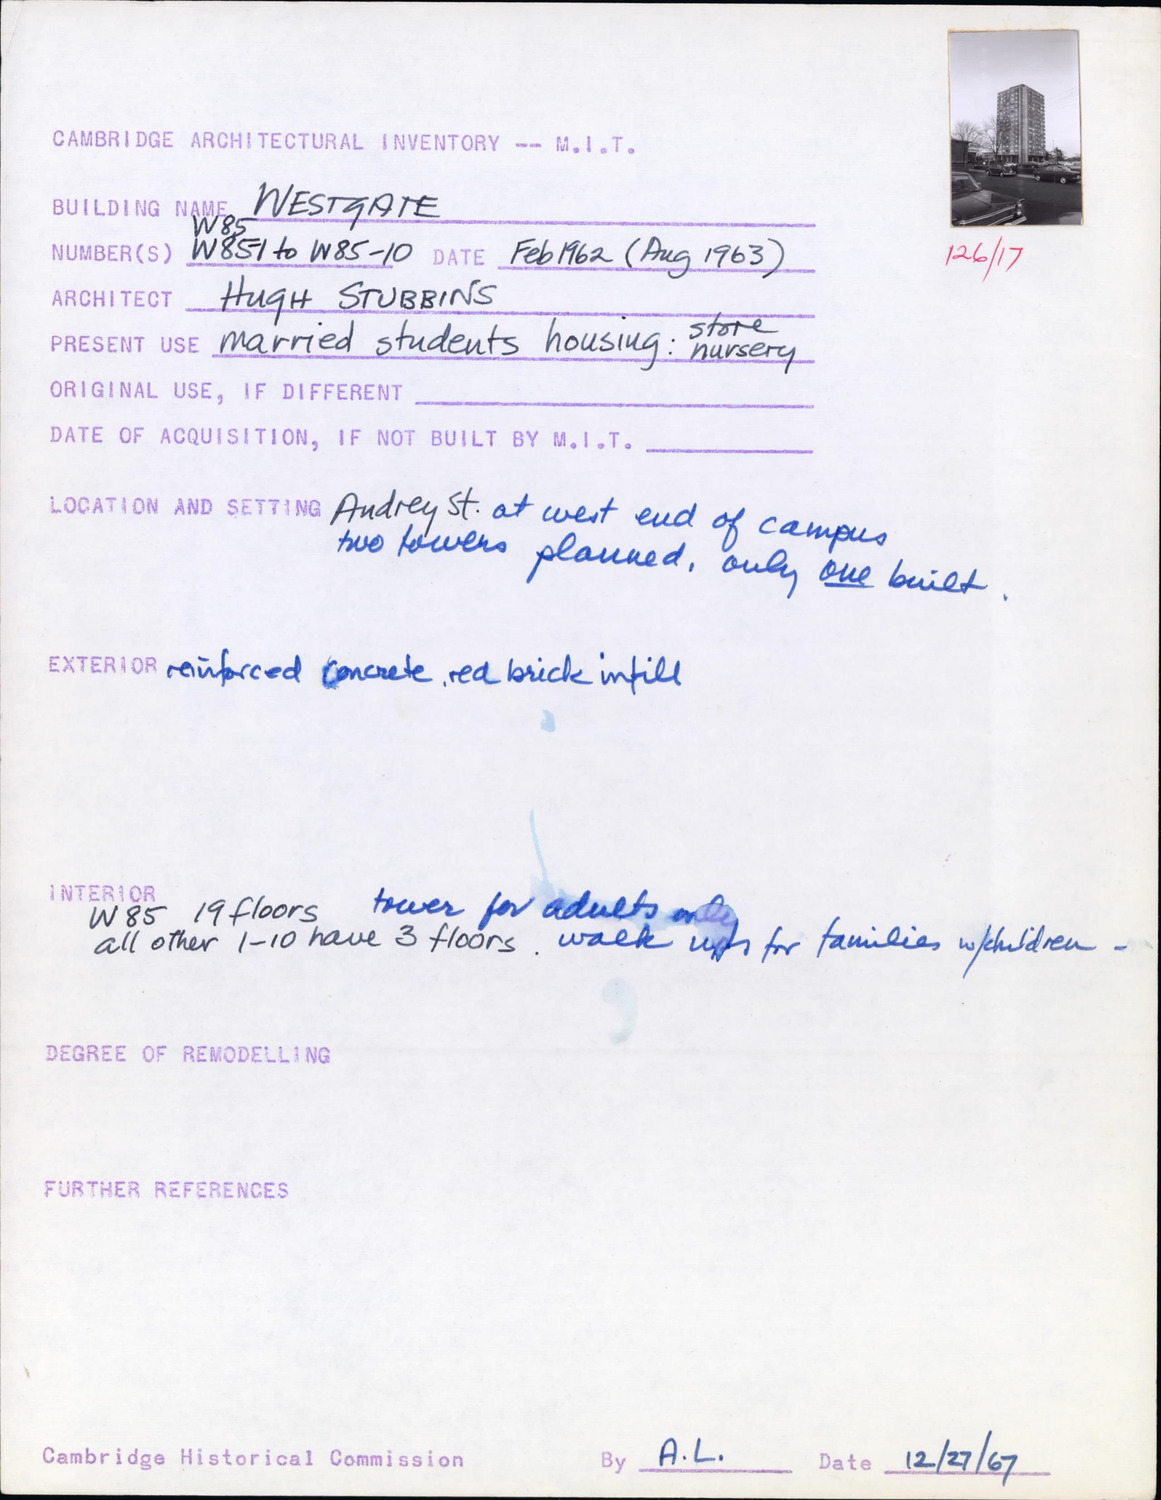 CAMBRIDGE ARCHITECTURAL INVENTORY -- M.I.T.
126/17
BUILDING NAME WESTGATE
W85
NUMBER(S) W851 to W85-10 DATE Feb 1962 (Aug 1963)
ARCHITECT HUGH STUBBINS
PRESENT USE married students housing: store
nursery
ORIGINAL USE, IF DIFFERENT
DATE OF ACQUISITION, IF NOT BUILT BY M.I.T.
LOCATION AND SETTING Audrey St. at west end of campus
two towers planned, only one built.
EXTERIOR reinforced concrete, red brick infill
INTERIOR
W85 19 floors tower for adults only
all other 1-10 have 3 floors. walk ups for families w/children -
DEGREE OF REMODELLING
FURTHER REFERENCES
Cambridge Historical Commission By A.L. Date 12/27/67